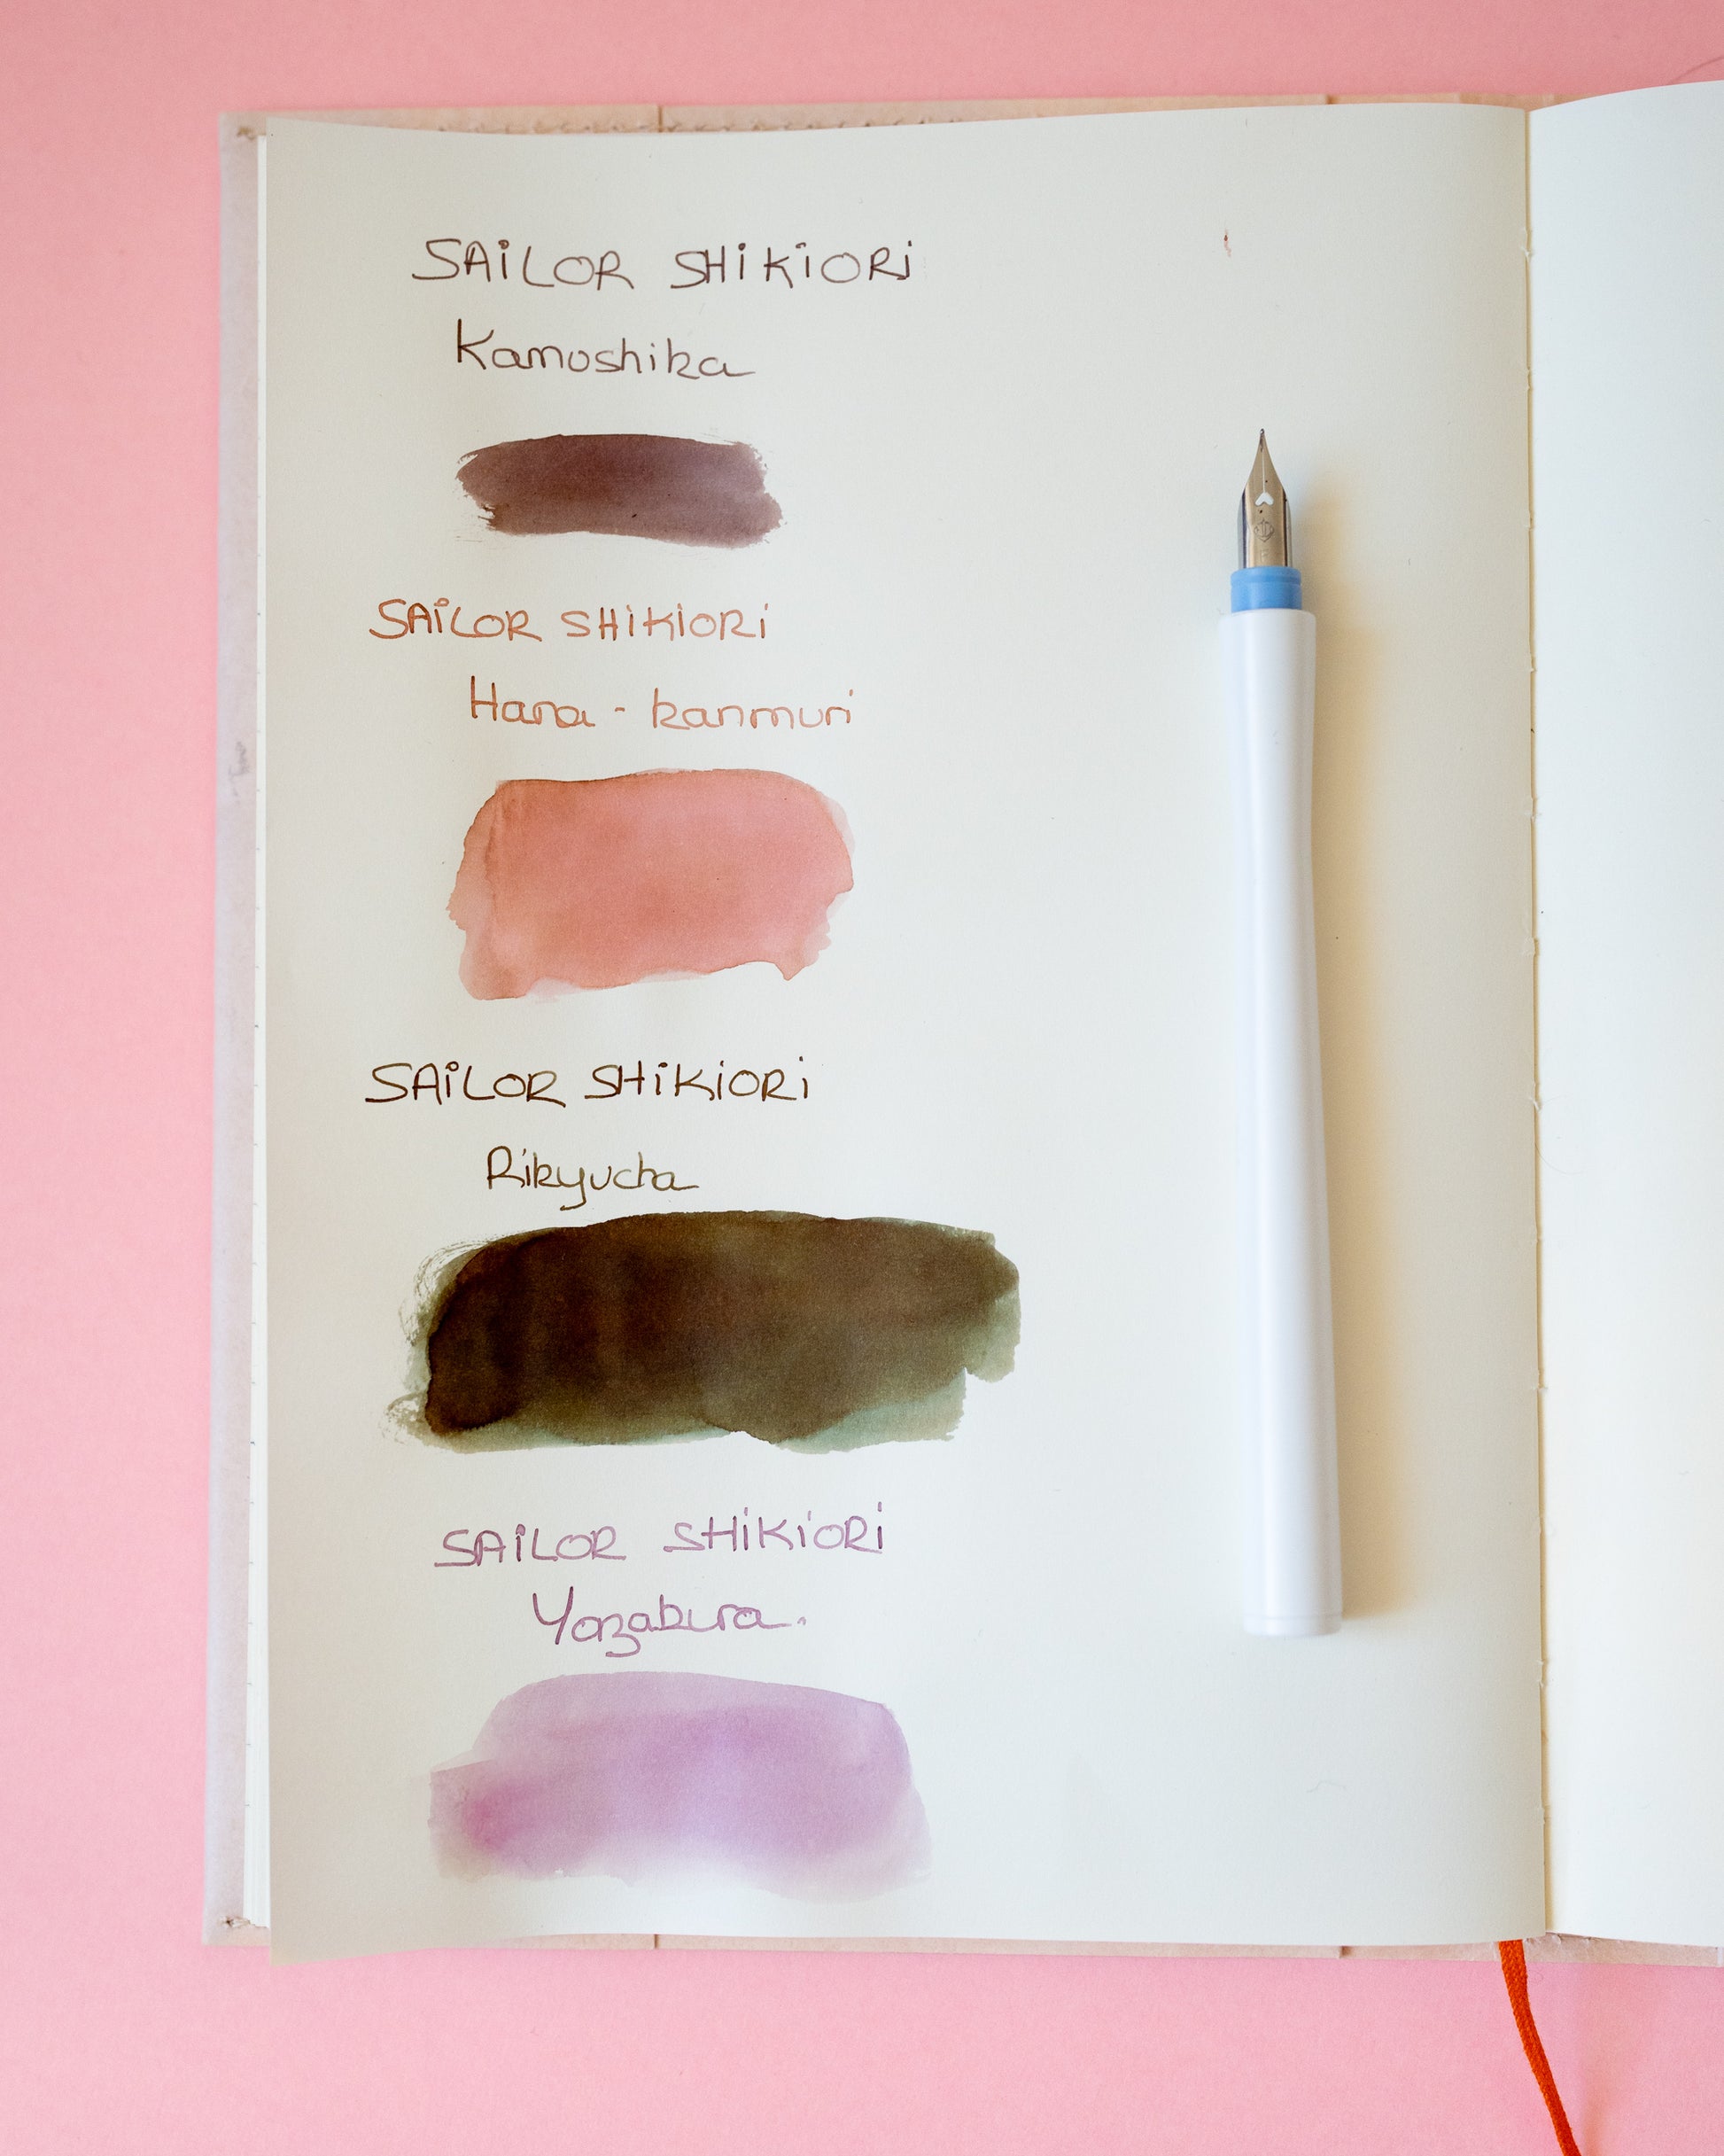 SAiLOR SHiKiORi
Kamoshika
SAiLOR SHiKiORi
Hana - kanmuri
SAiLOR SHiKiORi
Rikyucha
SAiLOR SHiKiORi
Yozakura.